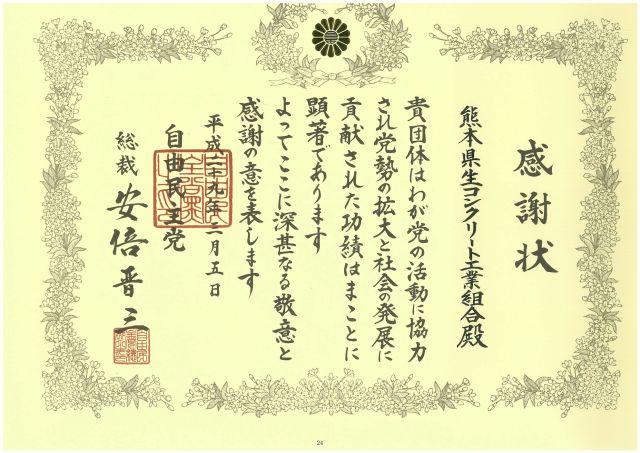 感謝状
熊本県生コンクリート工業組合殿
貴団体はわが党の活動に協力
され党勢の拡大と社会の発展に
貢献された功績はまことに
顕著であります
よってここに深甚なる敬意と
感謝の意を表します
平成二十九年三月五日
自由民主党
総裁 安倍晋三
24